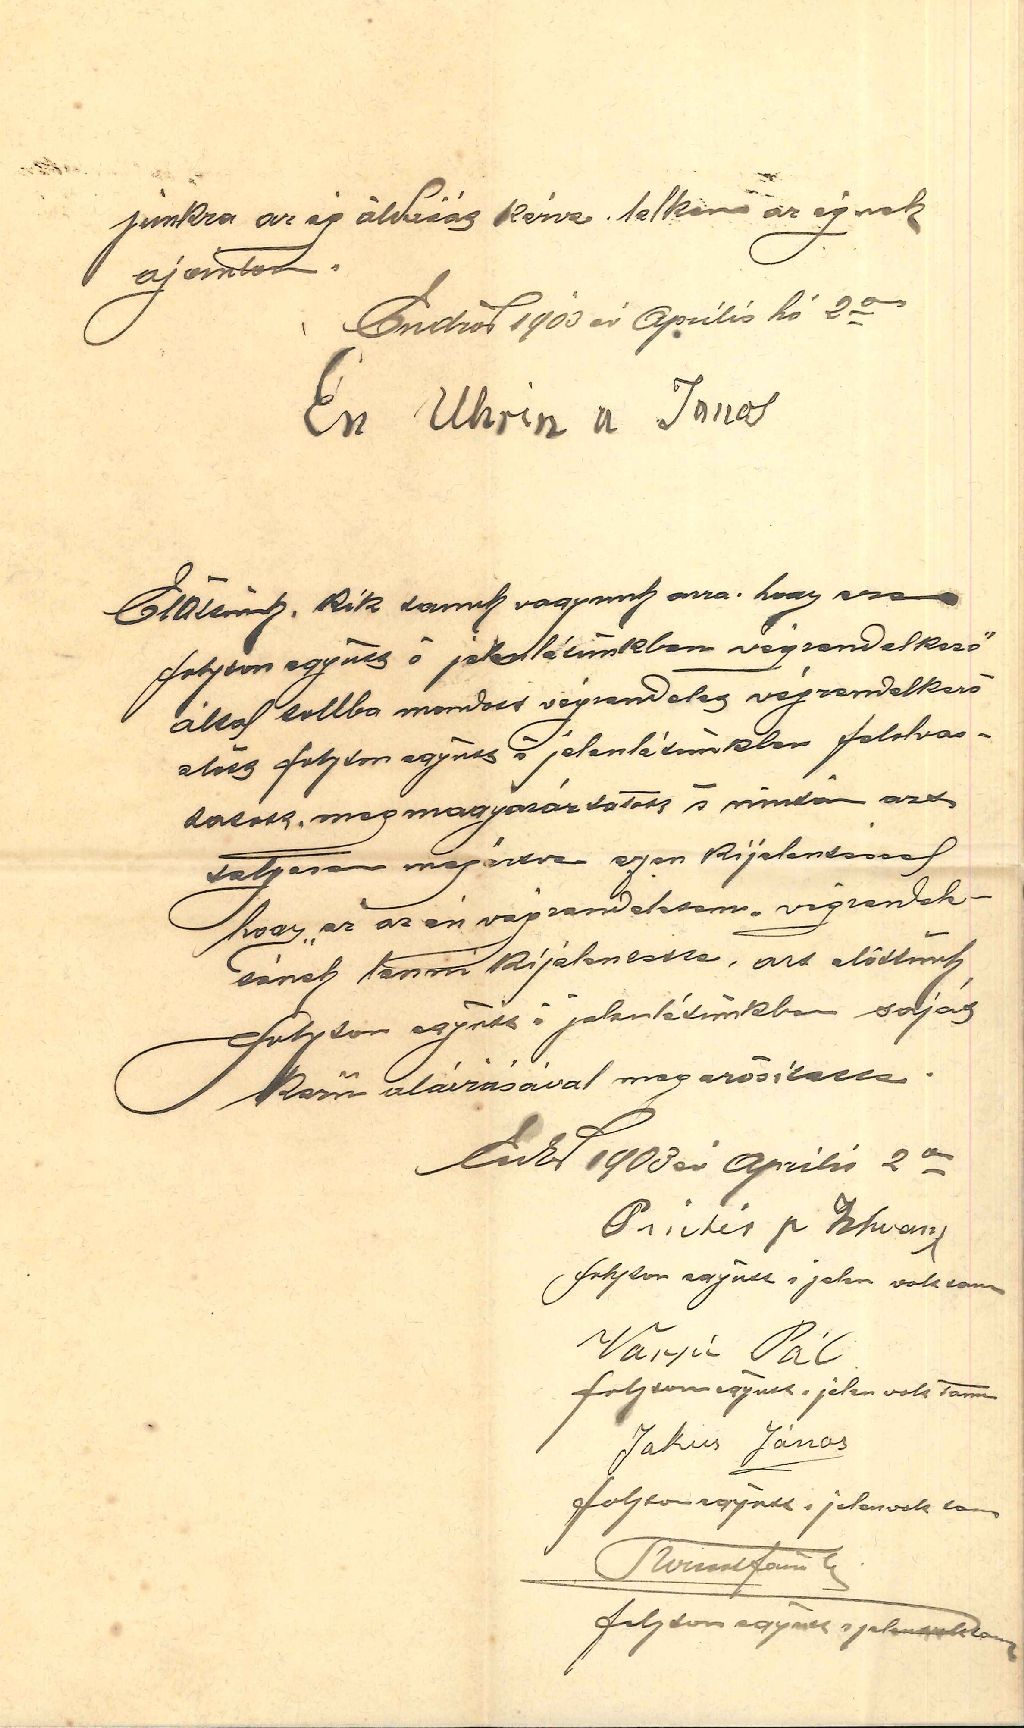 junkra az ég áldását kérve. lelkemet az égnek
ajánlom.
Endrőd 1903 év Április hó 2án
Én Uhrin a Janos
Előttünk, kik tanuk vagyunk arra. hogy ezen
folyton együtt s jelenlétünkben végrendelkező
által tollba mondott végrendelet végrendelkező
előtt folyton együtt s jelenlétünkben felolvas-
tatott, megmagyaráztatott s miután azt
teljesen megértve azon kijelentéssel
hogy „ez az én végrendeletem„ végrendele-
tének lenni kijelentette, azt előttünk
folyton együtt s jelenlétünkben saját
kezű aláirásával megerősitette.
Endrőd 1903 év Április 2án
p Istvan
folyton együtt s jelen voltam
Varjú Pál
folyton együtt s jelen voltam
Jakus János
folyton együtt s jelen voltam
folyton együtt s jelen voltam